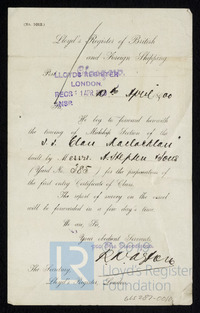 Lloyd's Register of British
and Foreign Shipping.
Port
LLOYDS REGISTER
LONDON
REC'D
April 1900
We beg to forward herewith
the tracing of Midship Section of the
s.s. "Clan Maclachlan"
built by Messrs. A. Stephen & Sons
(Yard No. 385) for the preparation of
the first entry Certificate of Class.
The report of survey on the vessel
will be forwarded in a few days' time.
We are, Sir,
Your obedient Servants,
The Secretary,
Lloyd's Register,
Lloyd's Register
Foundation